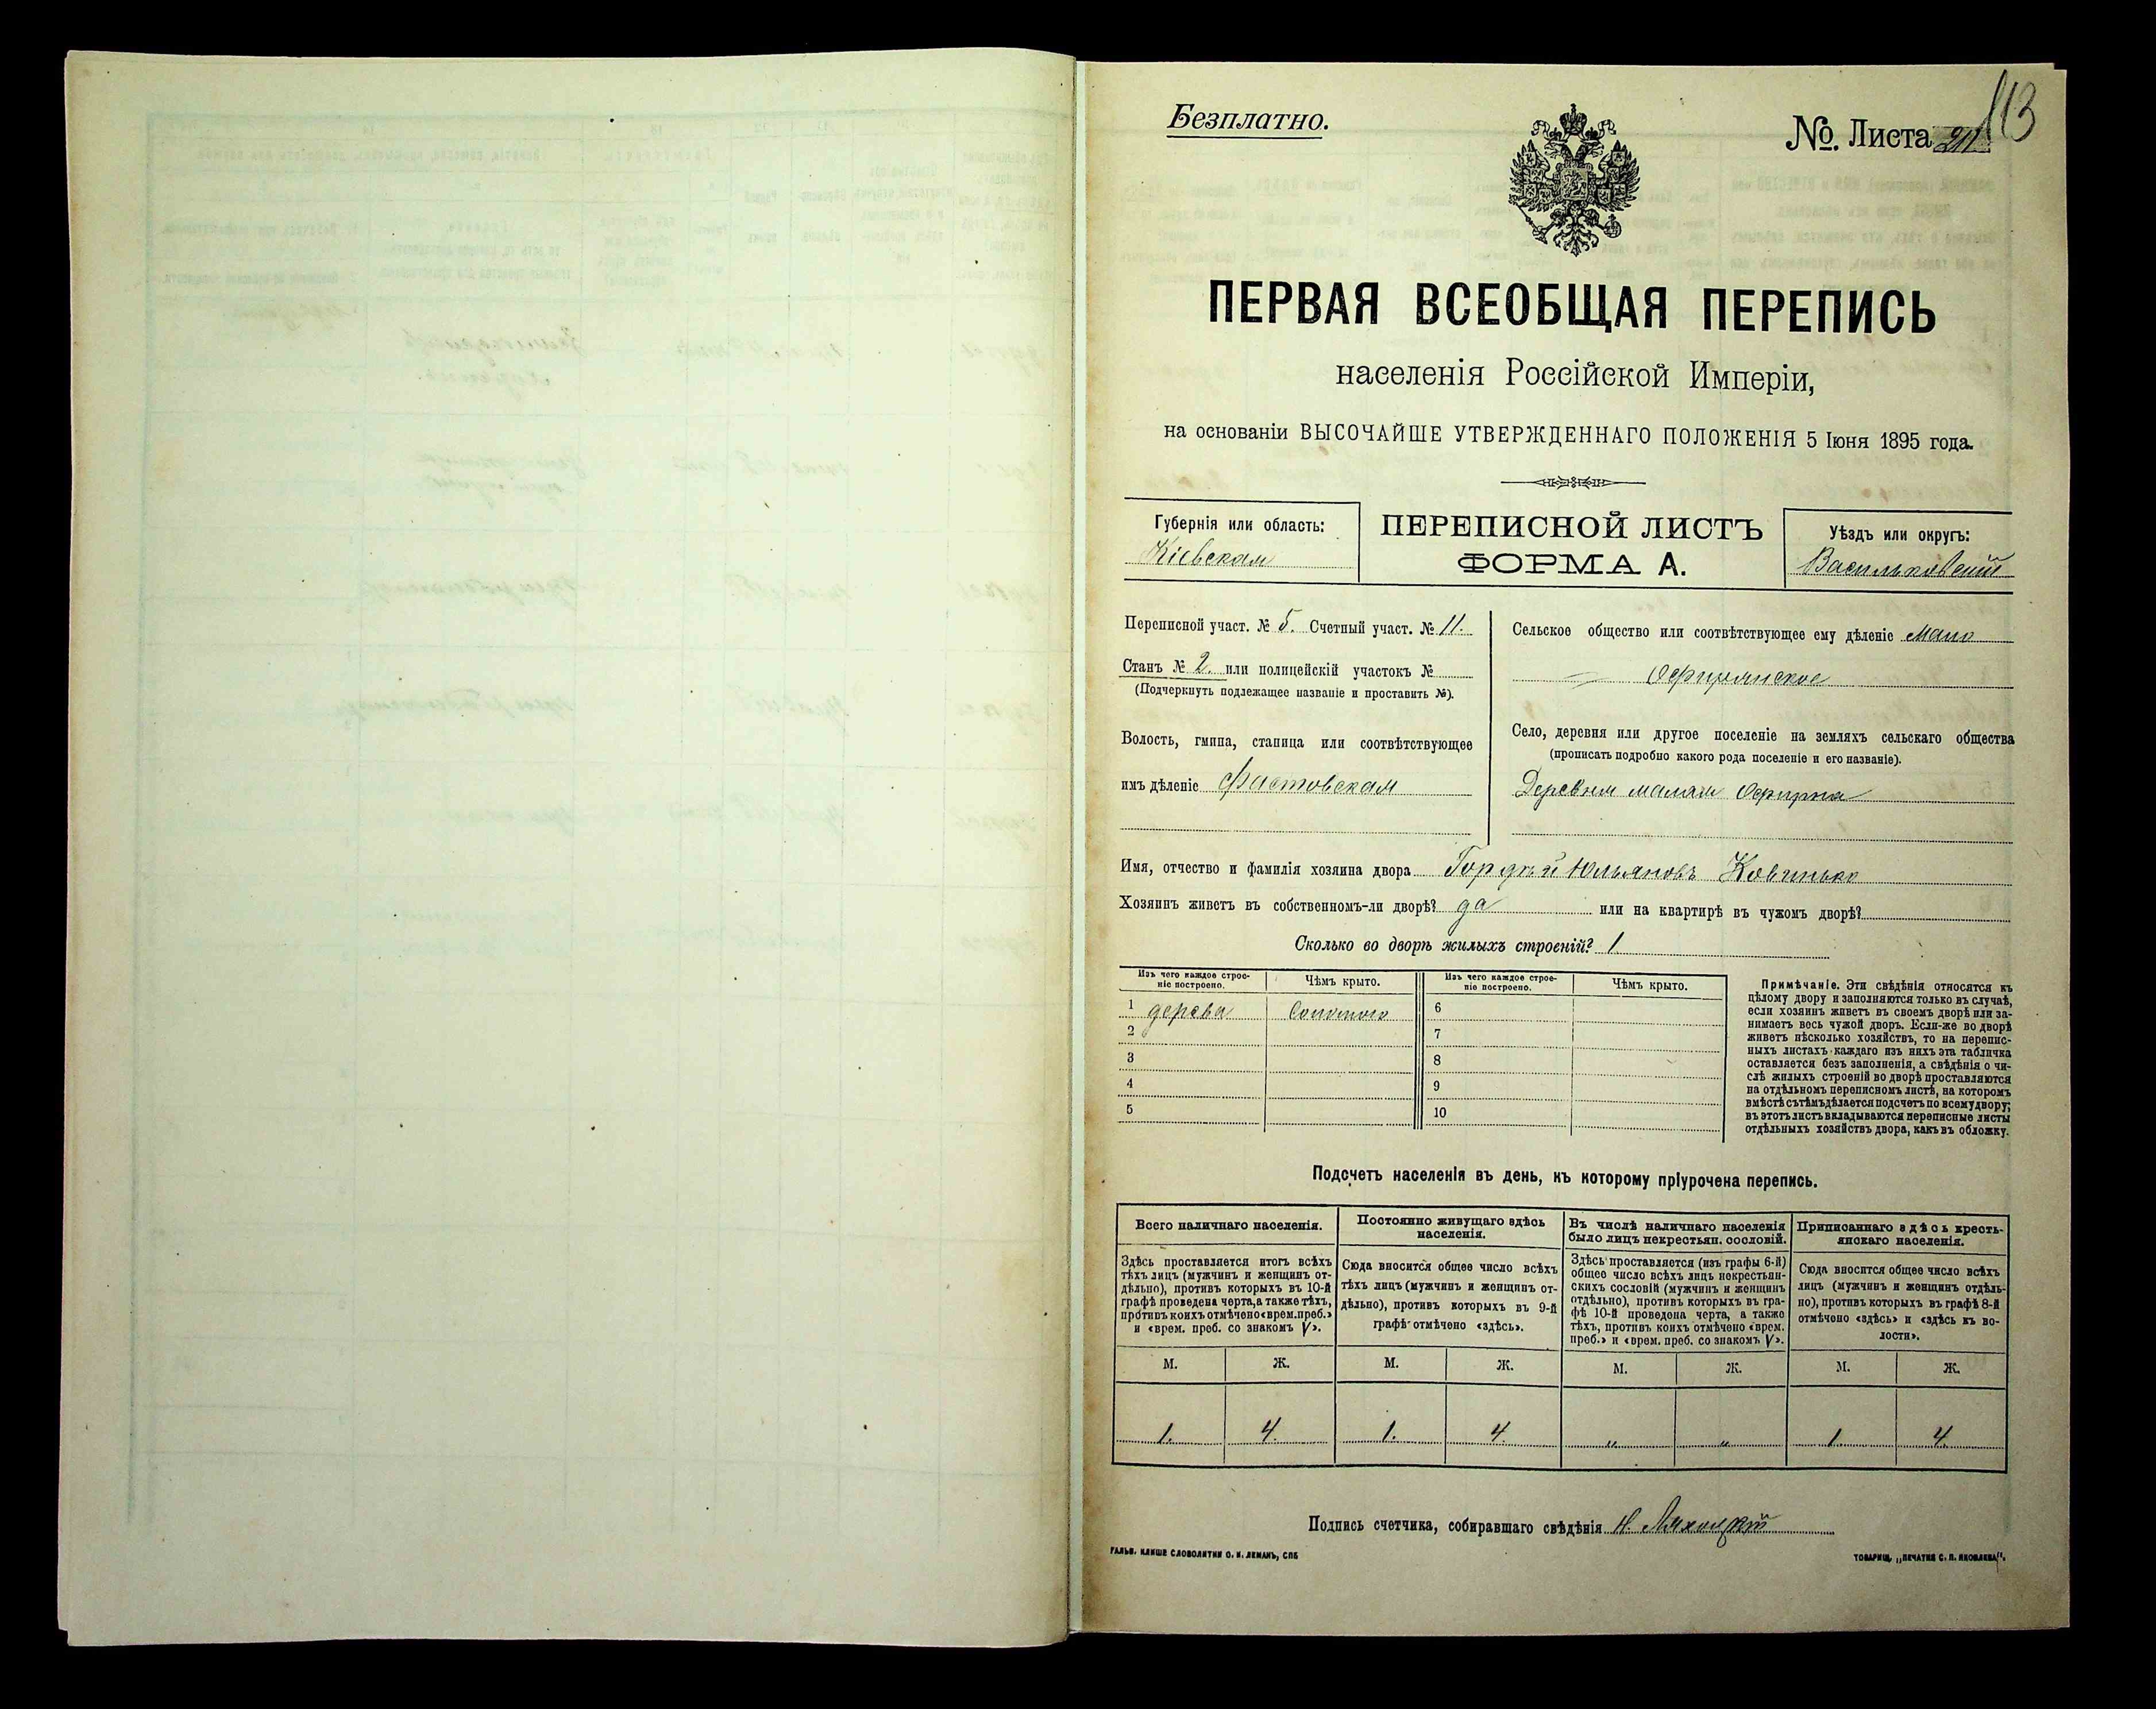 Безплатно.
№ Листа
113
ПЕРВАЯ ВСЕОБЩАЯ ПЕРЕПИСЬ
населенія Россійской Имперіи,
на основаніи ВЫСОЧАЙШЕ УТВЕРЖДЕННАГО ПОЛОЖЕНІЯ 5 Іюня 1895 года.
Губернія или область:
Кіевская
ПЕРЕПИСНОЙ ЛИСТЪ
ФОРМА А.
Уѣздъ или округъ:
Васильковскій
Переписной участ. № 5. Счетный участ. № 11.
Станъ № 2. или полицейскій участокъ №
(Подчеркнуть подлежащее названіе и проставить №).
Волость, гмина, станица или соотвѣтствующее
имъ дѣленіе Фастовская
Сельское общество или соотвѣтствующее ему дѣленіе Мало
Офирнянское
Село, деревня или другое поселеніе на земляхъ сельскаго общества
(прописать подробно какого рода поселеніе и его названіе).
Деревня малая Офирна
Имя, отчество и фамилія хозяина двора Гордѣй Юльяновъ Ковинько
Хозяинъ живетъ въ собственномъ-ли дворѣ? да или на квартирѣ въ чужомъ дворѣ?
Сколько во дворѣ жилыхъ строеній? 1
Изъ чего каждое строе-
ніе построено.
Чѣмъ крыто.
Изъ чего каждое строе-
ніе построено.
Чѣмъ крыто.
1 дерева Соломою 6
2 7
3 8
4 9
5 10
Примѣчаніе. Эти свѣдѣнія относятся къ
цѣлому двору и заполняются только въ случаѣ,
если хозяинъ живетъ въ своемъ дворѣ или за-
нимаетъ весь чужой дворъ. Если-же во дворѣ
живетъ нѣсколько хозяйствъ, то на перепис-
ныхъ листахъ каждаго изъ нихъ эта табличка
оставляется безъ заполненія, а свѣдѣнія о чи-
слѣ жилыхъ строеній во дворѣ проставляются
на отдѣльномъ переписномъ листѣ, на которомъ
вмѣстѣ съ тѣмъ дѣлается подсчетъ по всему двору;
въ этотъ листъ вкладываются переписные листы
отдѣльныхъ хозяйствъ двора, какъ въ обложку.
Подсчетъ населенія въ день, къ которому пріурочена перепись.
Всего наличнаго населенія.
Постоянно живущаго здѣсь
населенія.
Въ числѣ наличнаго населенія
было лицъ некрестьян. сословій.
Приписаннаго здѣсь кресть-
янскаго населенія.
Здѣсь проставляется итогъ всѣхъ
тѣхъ лицъ (мужчинъ и женщинъ от-
дѣльно), противъ которыхъ въ 10-й
графѣ проведена черта, а также тѣхъ,
противъ коихъ отмѣчено «врем. преб.»
и «врем. преб. со знакомъ V».
Сюда вносится общее число всѣхъ
тѣхъ лицъ (мужчинъ и женщинъ от-
дѣльно), противъ которыхъ въ 9-й
графѣ отмѣчено «здѣсь».
Здѣсь проставляется (изъ графы 6-й)
общее число всѣхъ лицъ некрестьян-
скихъ сословій (мужчинъ и женщинъ
отдѣльно), противъ которыхъ въ гра-
фѣ 10-й проведена черта, а также
тѣхъ, противъ коихъ отмѣчено «врем.
преб.» и «врем. преб. со знакомъ V».
Сюда вносится общее число всѣхъ
лицъ (мужчинъ и женщинъ отдѣль-
но), противъ которыхъ въ графѣ 8-й
отмѣчено «здѣсь» и «здѣсь къ во-
лости».
М. Ж. М. Ж. М. Ж. М. Ж.
1. 4. 1. 4. " " 1 4.
Подпись счетчика, собиравшаго свѣдѣнія Н. Ляхоцкій
ГАЛЬВ. КЛИШЕ СЛОВОЛИТНИ О. И. ЛЕМАНЪ, СПБ
ТОВАРИЩ. „ПЕЧАТНЯ С. П. ЯКОВЛЕВА“.